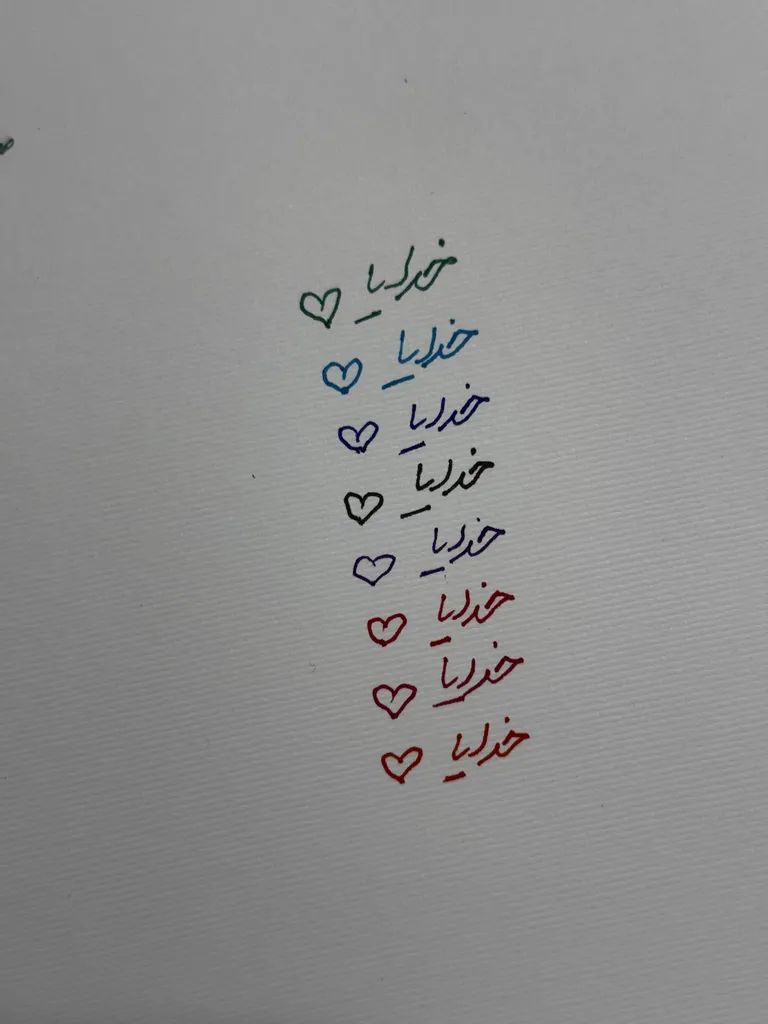 خدایا ♡
خدایا ♡
خدایا ♡
خدایا ♡
خدایا ♡
خدایا ♡
خدایا ♡
خدایا ♡